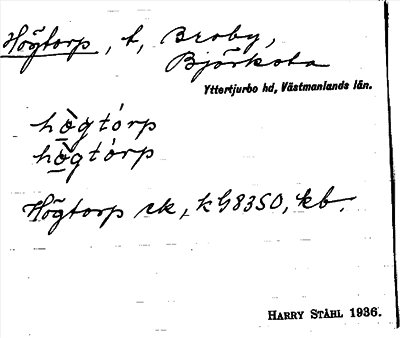 Högtorp, t, Broby,
Björksta
Yttertjurbo hd, Västmanlands län.
hò̱gtórp
hò̱gtórp
Högtorp ek, kG8350, kb.
HARRY STÅHL 1936.